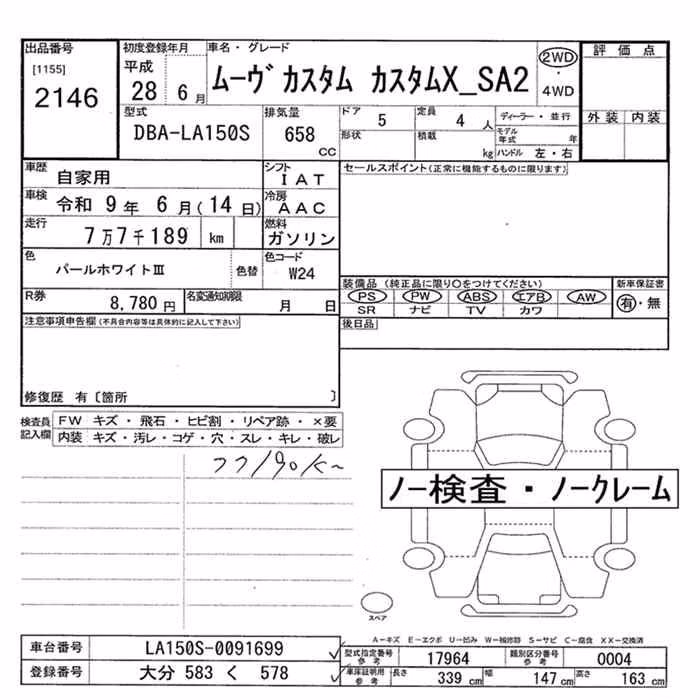 出品番号
[1155]
2146
初度登録年月
平成
28 6 月
車名・グレード
ムーヴ カスタム カスタムX_SA2
2WD
・
4WD
評価点
外装 内装
型式
DBA-LA150S
排気量
658
CC
ドア
5
定員
4 人
形状
積載
kg
ディーラー・並行
モデル年式 年
ハンドル 左・右
車歴
自家用
シフト
IAT
車検
令和 9年 6月(14日)
冷房
AAC
走行
7万7千189 km
燃料
ガソリン
色
パールホワイトⅢ
色替
色コード
W24
R券
8,780 円
名変通知期限
月 日
セールスポイント(正常に機能するものに限ります)
装備品 (純正品に限り○をつけてください)
PS PW ABS エアB AW
SR ナビ TV カワ
新車保証書
有・無
後日品
注意事項申告欄(不具合内容等は具体的に記入して下さい)
修復歴 有〔箇所 〕
検査員記入欄
FW キズ・飛石・ヒビ割・リペア跡・×要
内装 キズ・汚レ・コゲ・穴・スレ・キレ・破レ
77190K
ノー検査・ノークレーム
スペア
A-キズ E-エクボ U-凹み W-補修跡 S-サビ C-腐食 XX-交換済
車台番号
LA150S-0091699
登録番号
大分 583 く 578
型式指定番号
参考
17964
類別区分番号
参考
0004
車庫証明用
参考
長さ
339 cm
幅
147 cm
高さ
163 cm